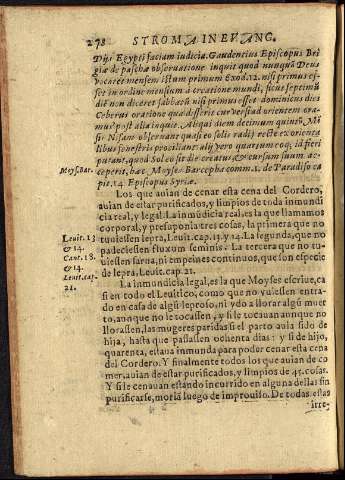 278 STROMA IN EVANG.
Dijs Egypti faciam iudicia. Gaudentius Episcopus Bri
giæ de paschæ obseruatione inquit quod nunquã Deus
vocaret mensem istum primum Exod. 12. nisi primus es-
set in ordine mensium à creatione mundi, sicut septimũ
diẽ non diceret sabbatũ nisi primus esset dominicus dies
Ceberus oratione qua differit cur versi ad orientem ora-
mus post alia inquit. Aliqui diem decimum quintũ Mẽ
sis Nisam obseruant quasi eo solis radij recte ex orienta
libus fenestris procillant: alij vero quartum eoq; id fieri
putant, quod Sol eo sit die creatus, & cursum suum ac-
Moys. Bar. ceperit, hæc Moyses Barcepha comm. 1. de Paradiso ca
pit. 14 Episcopus Syriæ.
Los que auian de cenar esta cena del Cordero,
auian de estar purificados, y limpios de toda inmundi
cia real, y legal. La inmũdicia real, es la que llamamos
corporal, y presuponia tres cosas, la primera que no
Leuit. 13 tuuiessen lepra, Leuit. cap. 13. y 14. La segunda, que no
& 14. padeciessen fluxum seminis. La tercera que no tu-
Cant. 18. uiessen sarna, ni empeines continuos, que son especie
& 14. de lepra, Leuit. cap. 21.
Leuit. cap. La inmundicia legal, es la que Moyses escriue, ca
21. si en todo el Leuitico, como que no vuiessen entra-
do en casa de algũ leproso, ni ydo a llorar algũ muer
to, aunque no le tocassen, y si le tocauan aunque no
llorassen, las mugeres paridas si el parto auia sido de
hija, hasta que passassen ochenta dias: y si de hijo,
quarenta, estaua inmunda para poder cenar esta cena
del Cordero. Y finalmente todos los que auian de co
mer, auian de estar purificados, y limpios de 45. cosas.
Y si le cenauan estando incurrido en alguna dellas sin
purificarse, moria luego de improuiso. De todas estas
irre-